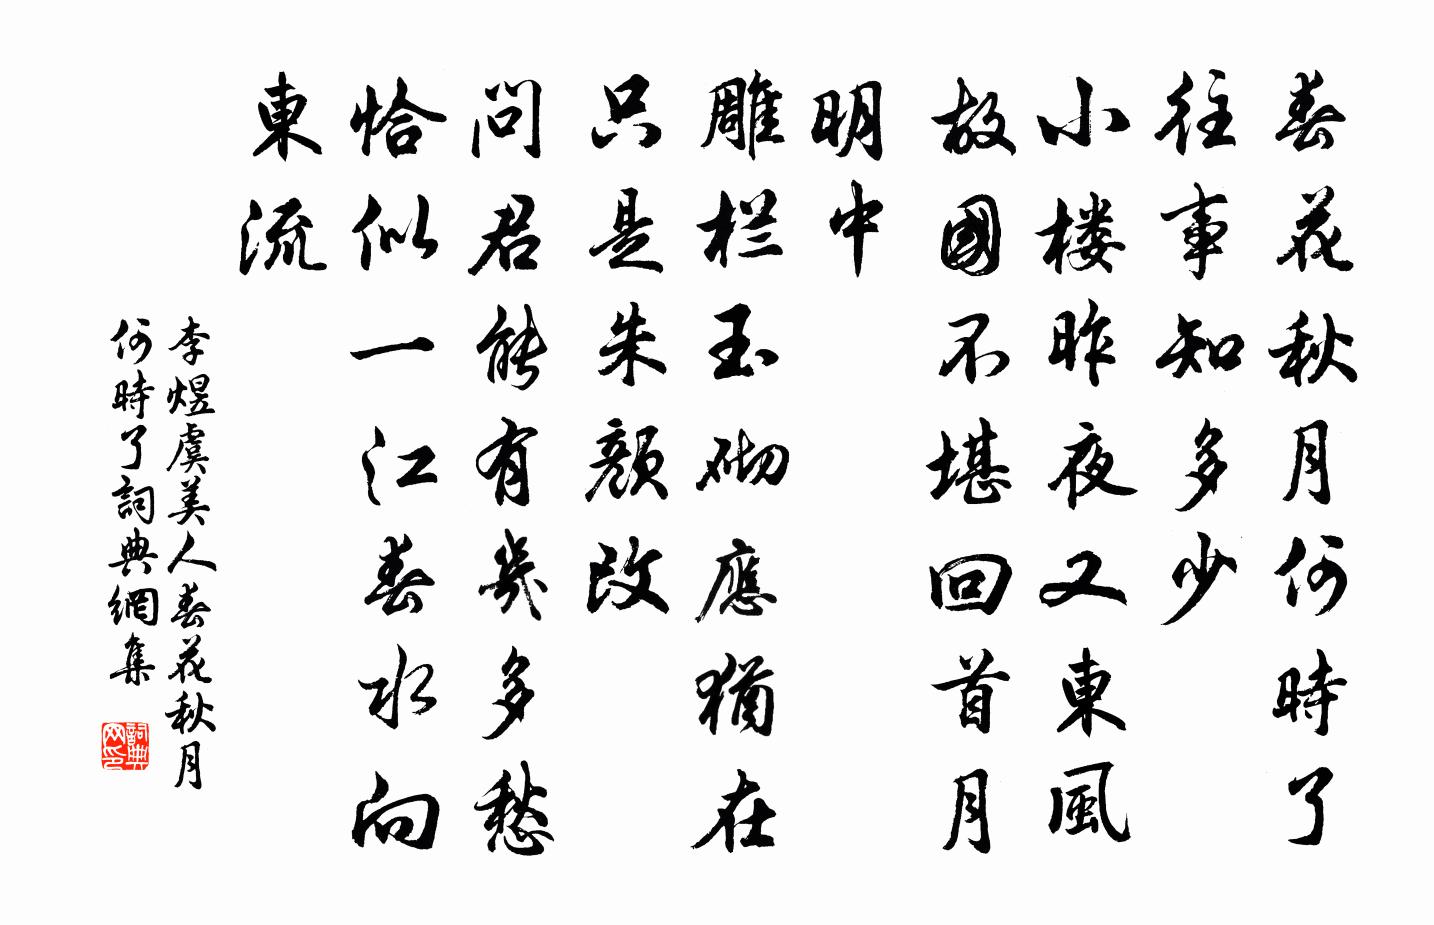 春花秋月何時了
往事知多少
小楼昨夜又東風
故國不堪回首月
明中
雕栏玉砌應猶在
只是朱顔改
问君能有幾多愁
恰似一江春水向
東流
李煜虞美人春花秋月
何時了詞典網集
詞典
网印